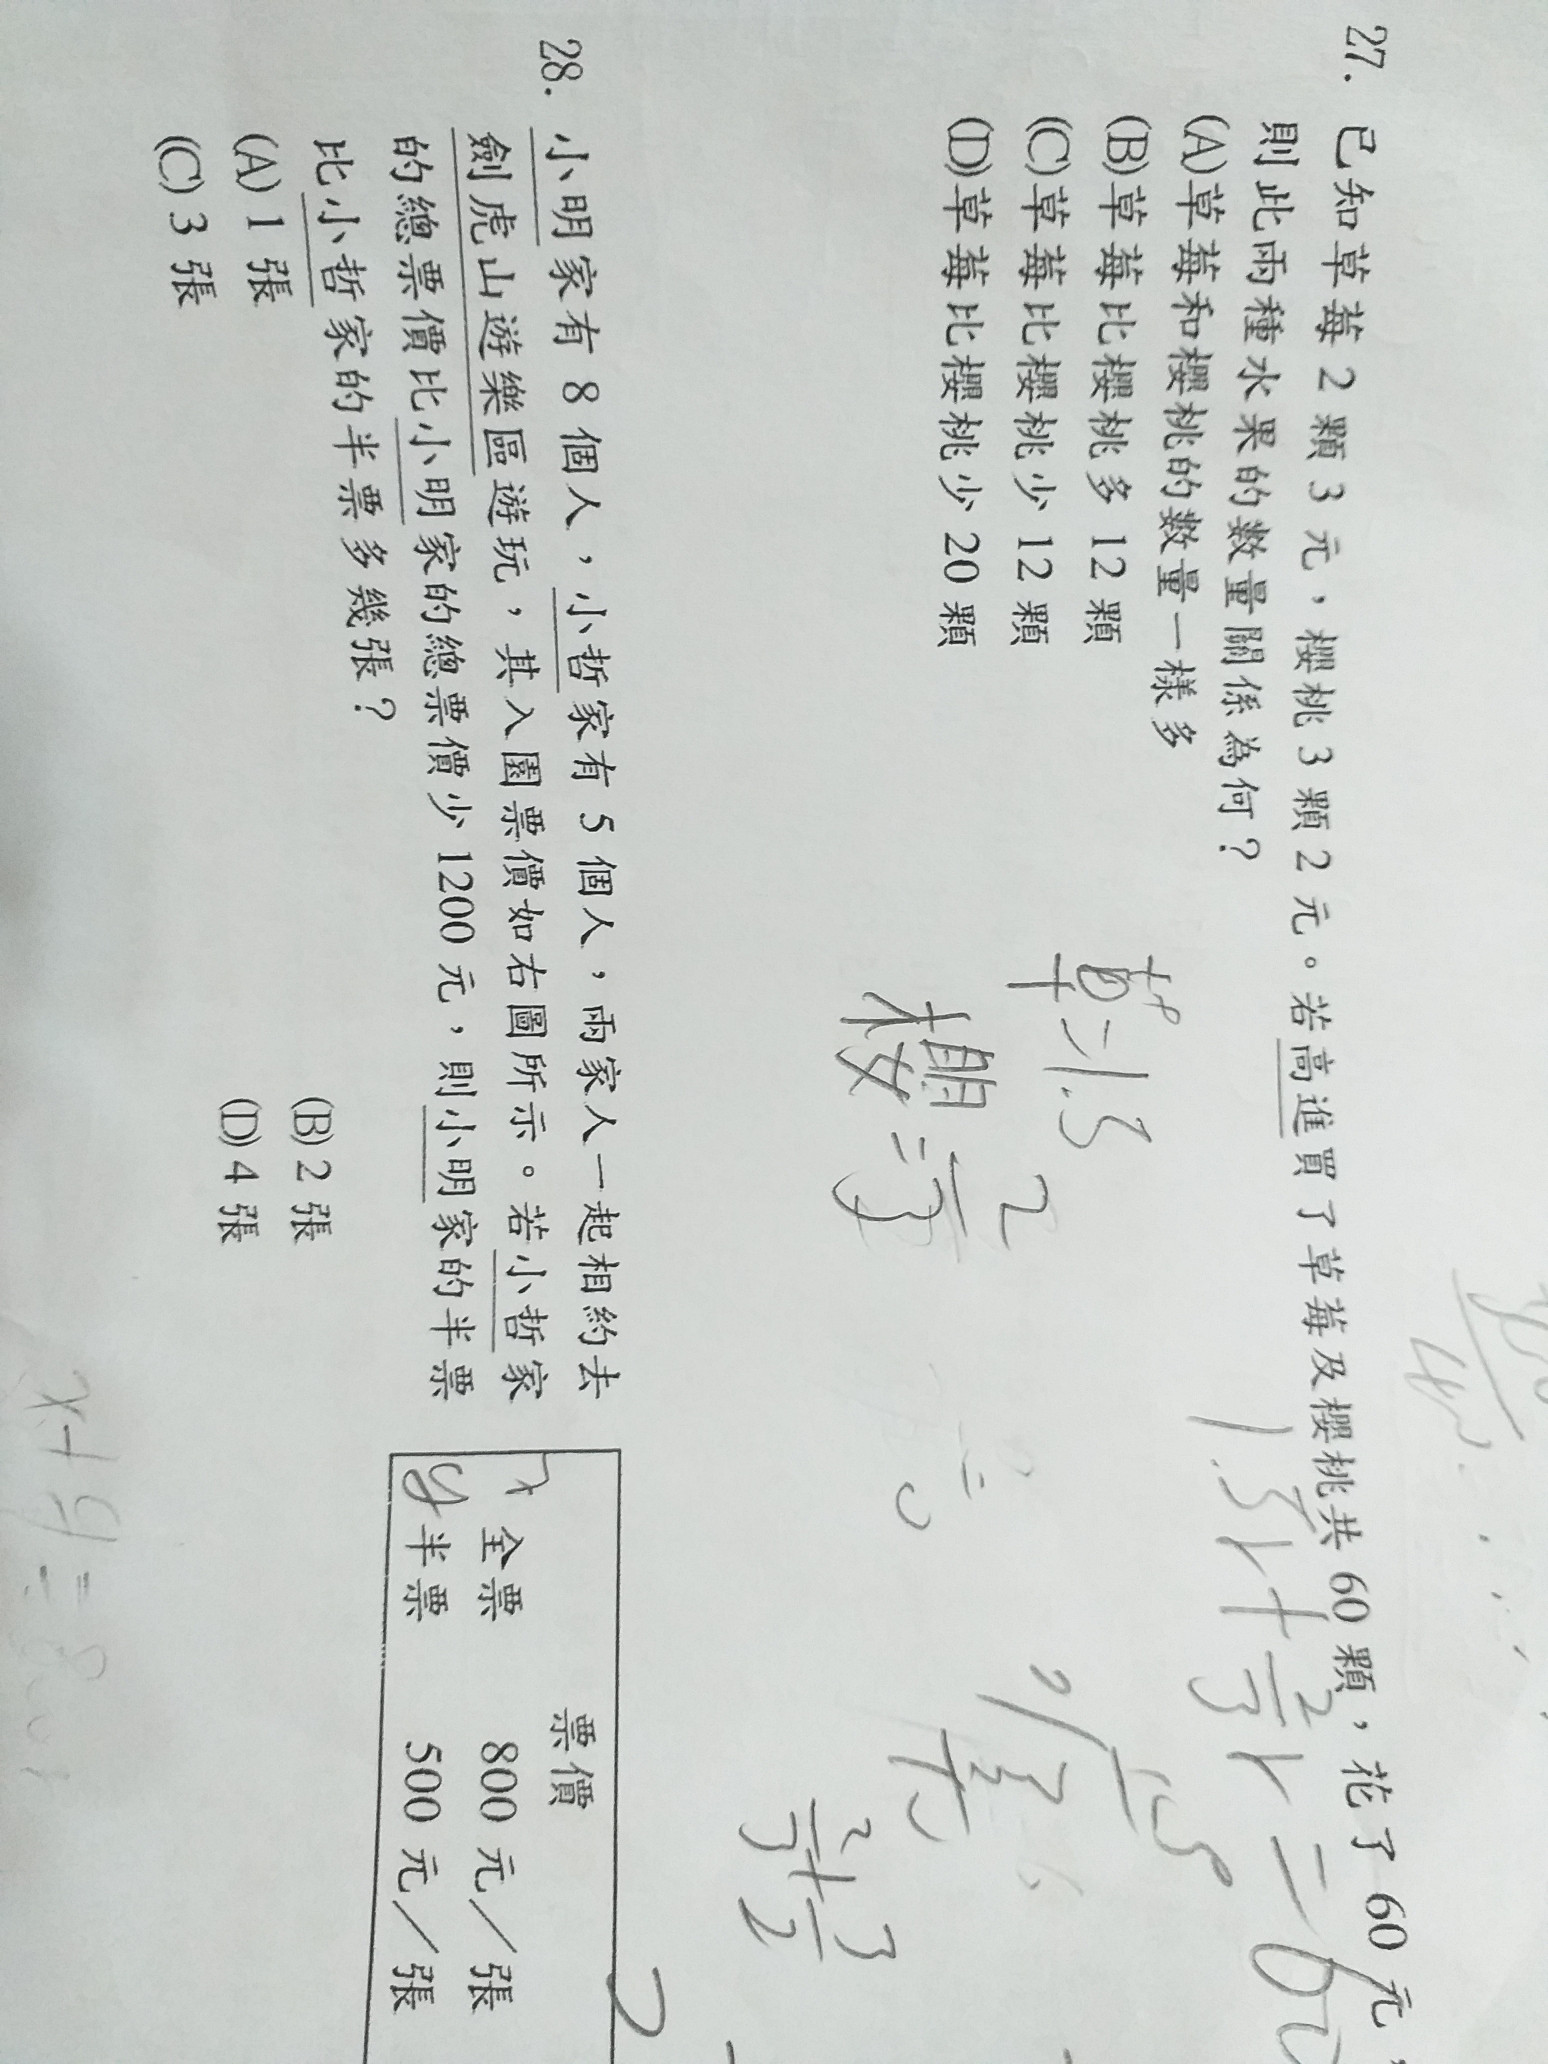 27. 已知草莓 2 顆 3 元，櫻桃 3 顆 2 元。若高進買了草莓及櫻桃共 60 顆，花了 60 元，
則此兩種水果的數量關係為何？
(A)草莓和櫻桃的數量一樣多
(B)草莓比櫻桃多 12 顆
(C)草莓比櫻桃少 12 顆
(D)草莓比櫻桃少 20 顆
草=1.5
櫻=2/3
28. 小明家有 8 個人，小哲家有 5 個人，兩家人一起相約去
劍虎山遊樂區遊玩，其入園票價如右圖所示。若小哲家
的總票價比小明家的總票價少 1200 元，則小明家的半票
比小哲家的半票多幾張？
(A) 1 張
(B) 2 張
(C) 3 張
(D) 4 張
票價
x 全票 800 元／張
y 半票 500 元／張
2/3+3/2
x+y=8